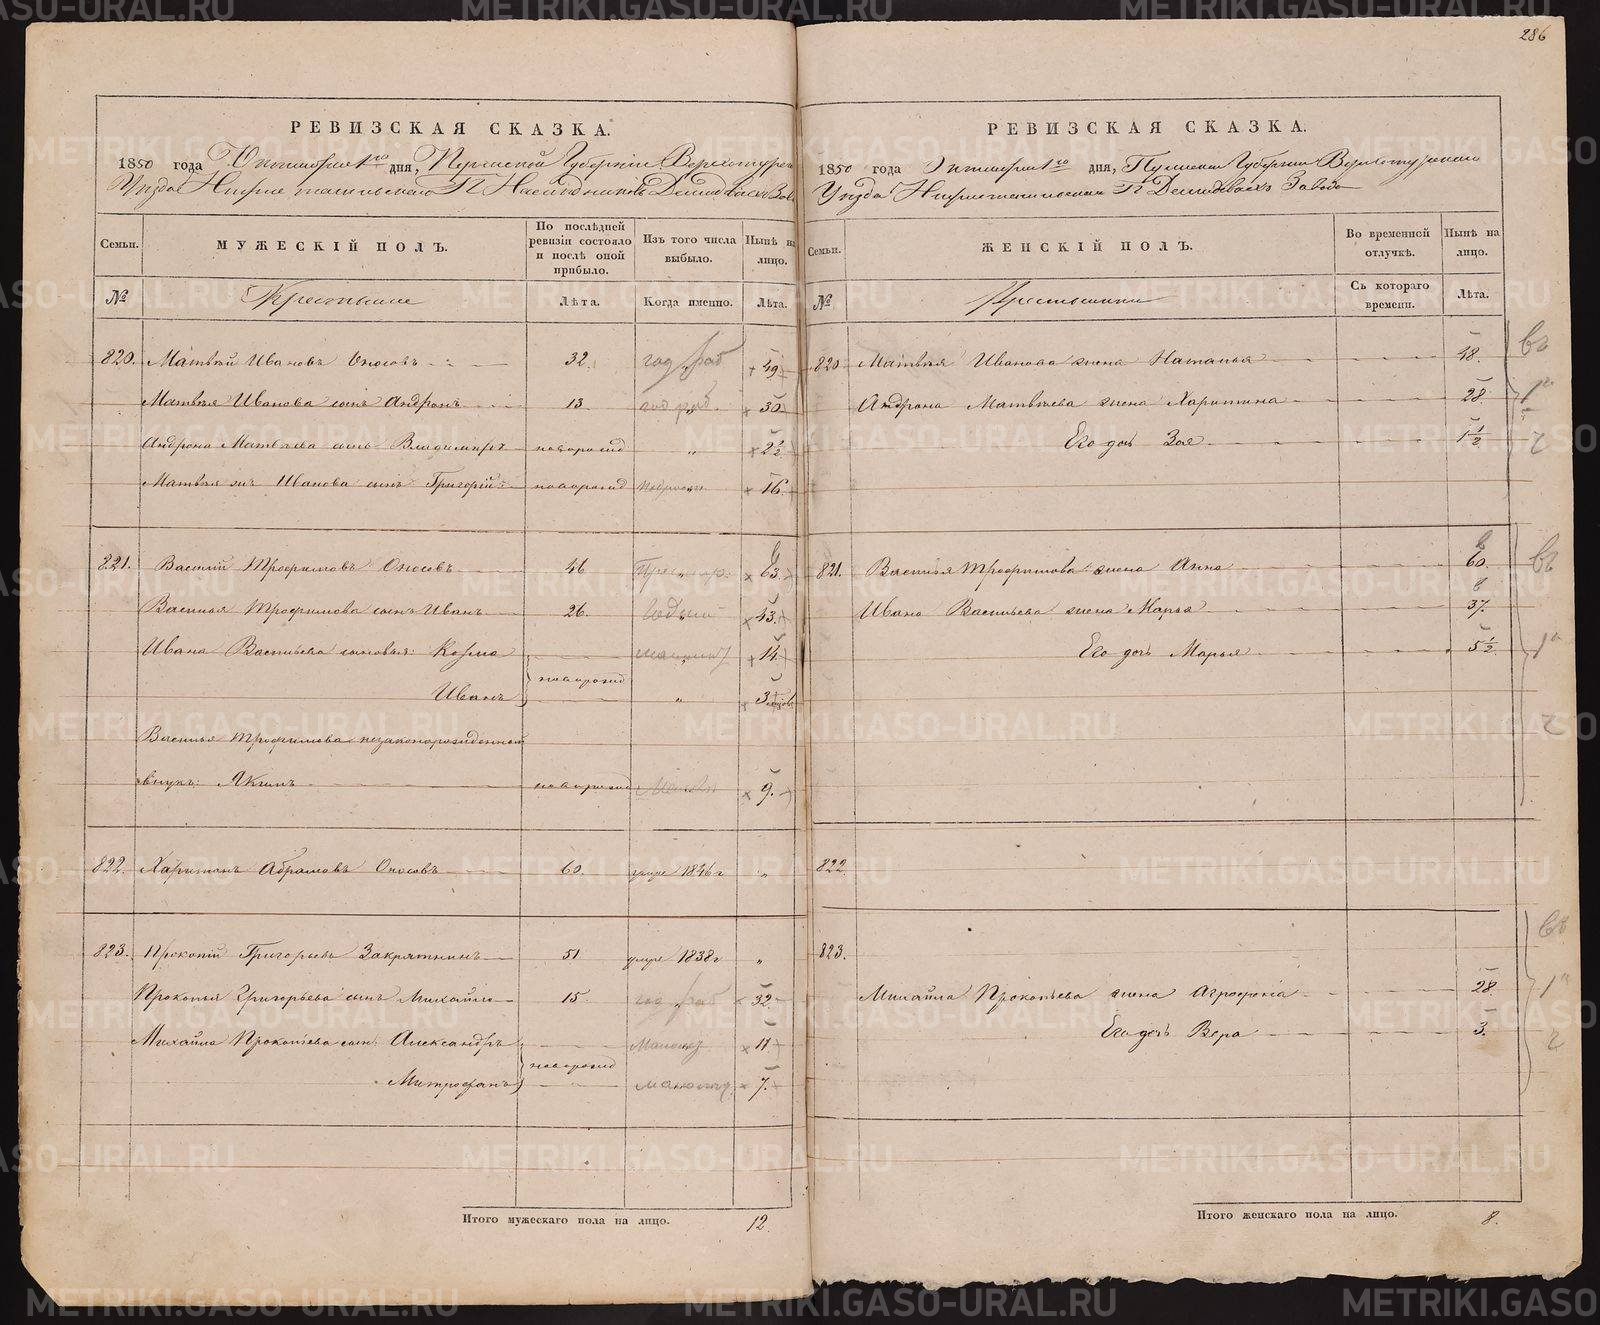 286
РЕВИЗСКАЯ СКАЗКА.
1850 года Октября 1го дня, Пермской Губернiи Верхотурска
Уѣзда Нижнетагильскаго П Наслѣдниковъ Демидовыхъ Зав
Семьи.
МУЖЕСКIЙ ПОЛЪ.
По послѣдней ревизiи состояло и послѣ оной прибыло.
Изъ того числа выбыло.
Нынѣ на лицо.
№
Крестьяне
Лѣта.
Когда именно.
Лѣта.
820. Матвѣй Ивановъ Оносовъ 32. год раб 49
Матвѣя Иванова сынъ Андронъ 13. год раб. 30
Андрона Матвѣева сынъ Владимиръ новорожд „ 2½
Матвѣя жъ Иванова сынъ Григорiй новорожд „ 16
821. Василiй Трофимовъ Оносовъ 46 „ 63.
Василья Трофимова сынъ Иванъ 26. 43.
Ивана Васильева сыновья: Козма новорожд 14
Иванъ „ 3 мѣсяцов
Василья Трофимова незаконорожденной
внукъ: Якимъ новорожд 9.
822. Харитонъ Абрамовъ Оносовъ 60. умре 1846 г „
823. Прокопiй Григорьевъ Закряткинъ 51 умре 1838 г „
Прокопья Григорьева сынъ Михайло 15. год раб 32
Михайла Прокопьева сын: Александръ новорожд Малолѣт 11
Митрофанъ малолѣт 7.
Итого мужескаго пола на лицо. 12.
РЕВИЗСКАЯ СКАЗКА.
1850 года Октября 1го дня, Пермской Губернiи Верхотурскаго
Уѣзда Нижнетагильскаго П Демидовыхъ Завода
Семьи.
ЖЕНСКIЙ ПОЛЪ.
Во временной отлучкѣ.
Нынѣ на лицо.
№
Крестьянки
Съ котораго времени.
Лѣта.
820 Матвѣя Иванова жена Наталья 48.
Андрона Матвѣева жена Харитина 28
Его дочь Зоя 1½
821. Василья Трофимова жена Анна 60.
Ивана Васильева жена Марья 37.
Его дочь Марья 5½
822
823.
Михайла Прокопьева жена Агрофенiа 28
Его дочь Вера 3.
Итого женскаго пола на лицо. 8.
METRIKI.GASO-URAL.RU